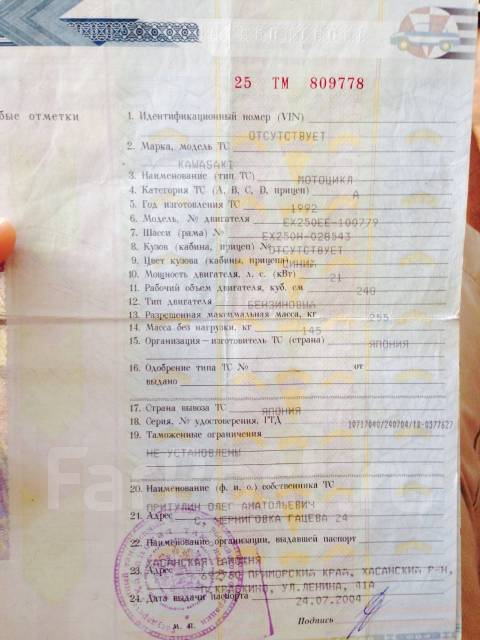 25 ТМ 809778
бые отметки
1. Идентификационный номер (VIN)
ОТСУТСТВУЕТ
2. Марка, модель ТС
KAWASAKI
3. Наименование (тип ТС) МОТОЦИКЛ
4. Категория ТС (А, В, С, D, прицеп) А
5. Год изготовления ТС 1992
6. Модель, № двигателя EX250EE-100779
7. Шасси (рама) № EX250H-028543
8. Кузов (кабина, прицеп) № ОТСУТСТВУЕТ
9. Цвет кузова (кабины, прицепа) СИНИЙ
10. Мощность двигателя, л. с. (кВт) 21
11. Рабочий объем двигателя, куб. см 248
12. Тип двигателя БЕНЗИНОВЫЙ
13. Разрешенная максимальная масса, кг 255
14. Масса без нагрузки, кг 145
15. Организация—изготовитель ТС (страна) ЯПОНИЯ
16. Одобрение типа ТС № от
выдано
17. Страна вывоза ТС ЯПОНИЯ
18. Серия, № удостоверения, ГТД 10717040/240704/ТВ-0377627
19. Таможенные ограничения
НЕ УСТАНОВЛЕНЫ
20. Наименование (ф. и. о.) собственника ТС
ПРИТУЛИН ОЛЕГ АНАТОЛЬЕВИЧ
21. Адрес С. ЧЕРНИГОВКА ГАЦЕВА 24
22. Наименование организации, выдавшей паспорт
ХАСАНСКАЯ ТАМОЖНЯ
23. Адрес ПРИМОРСКИЙ КРАЙ, ХАСАНСКИЙ Р-Н,
КРАСКИНО, УЛ.ЛЕНИНА, 41А
24. Дата выдачи паспорта 24.07.2004
М. П. Подпись